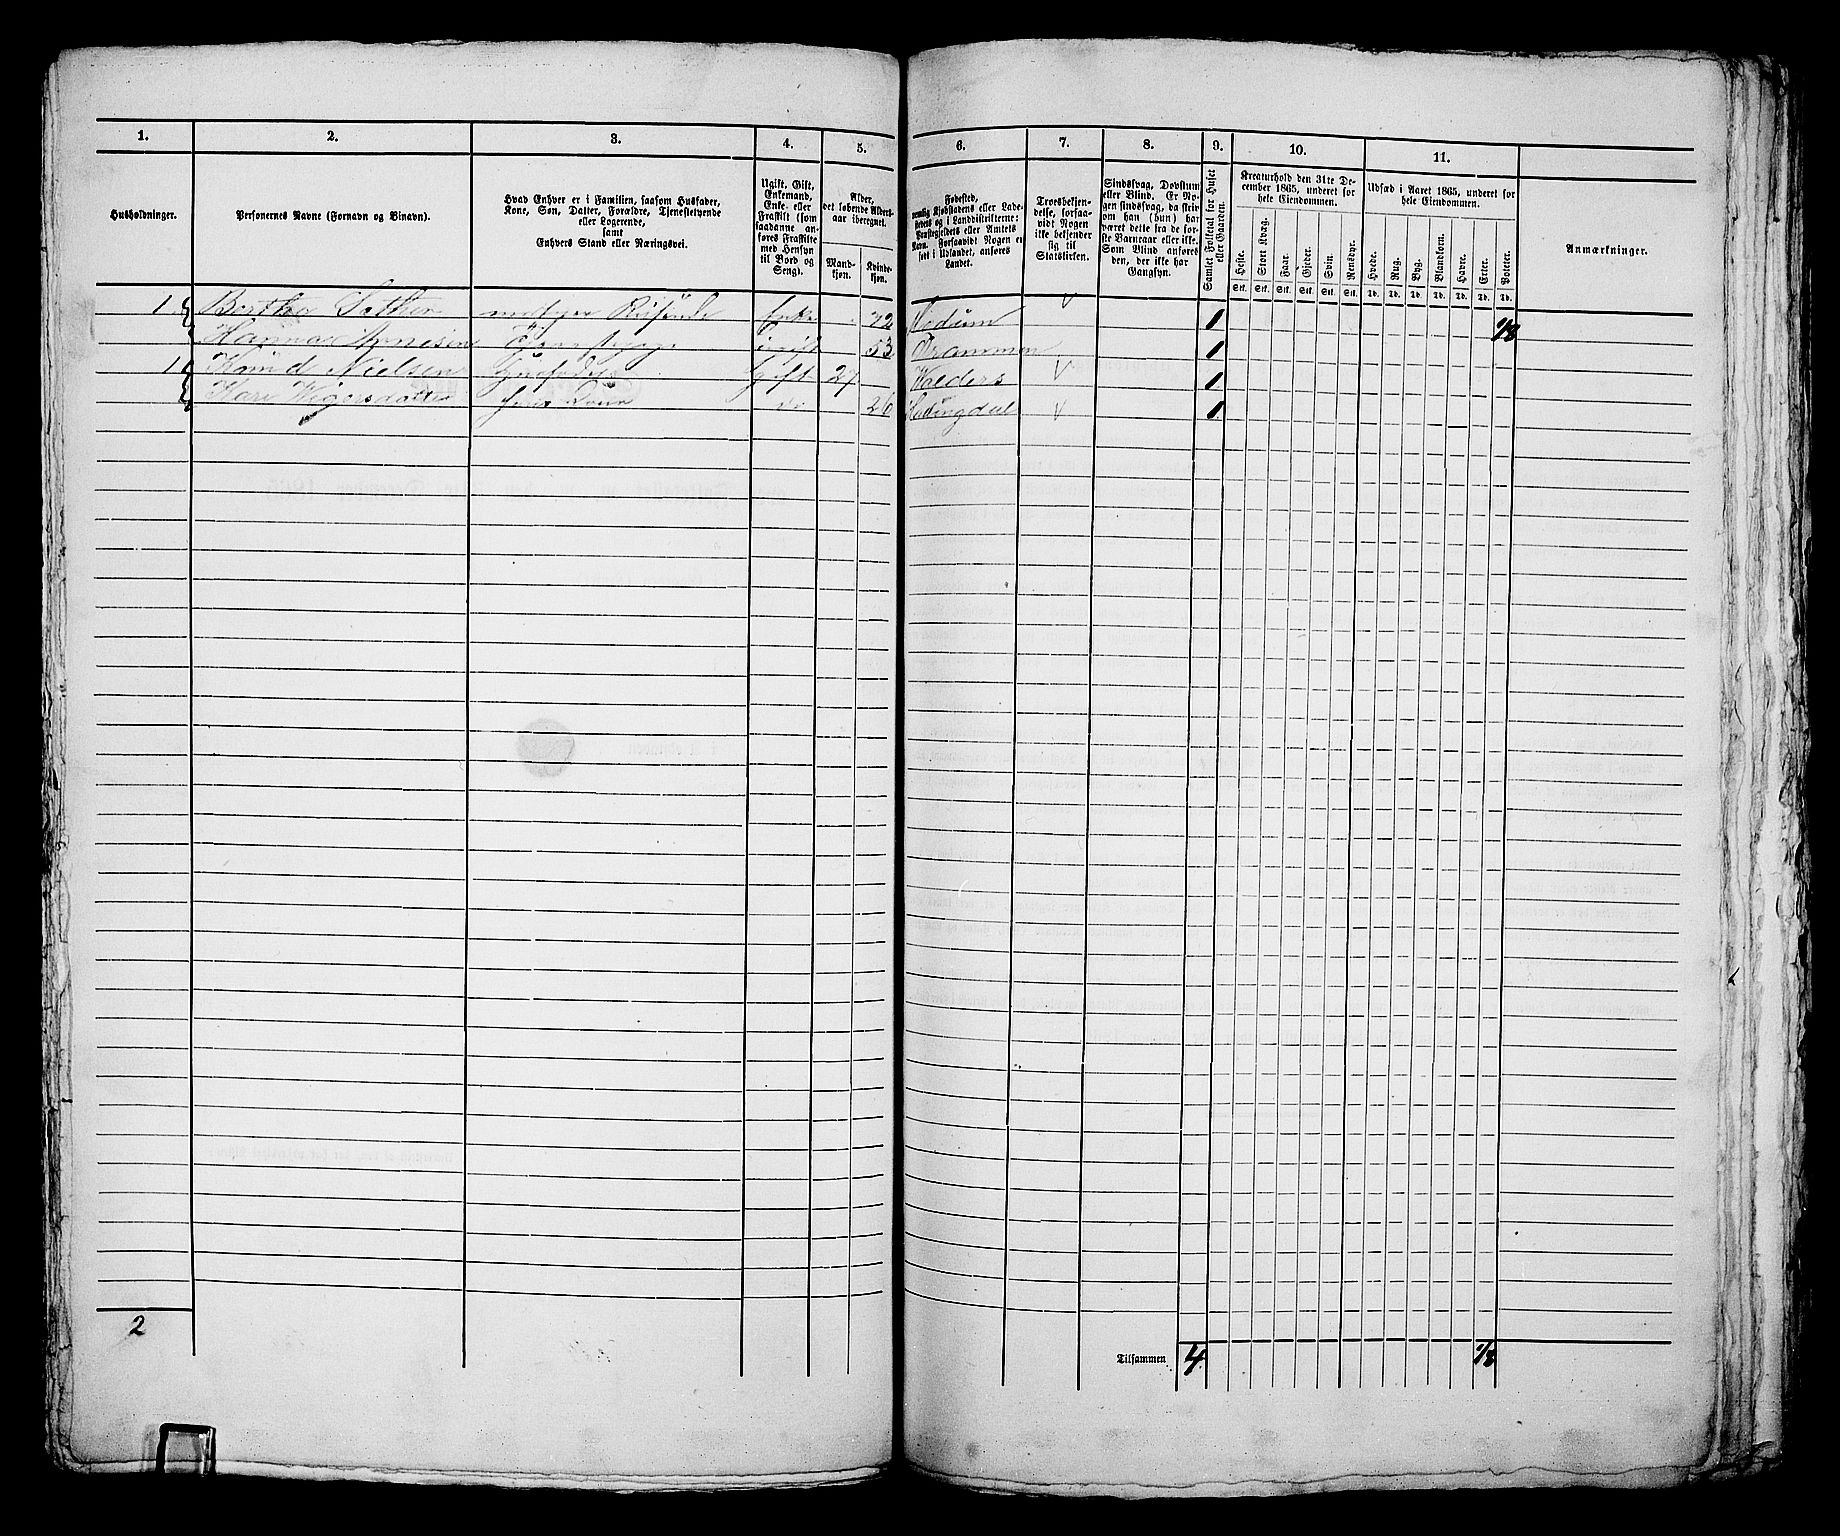 1. 2. 3. 4. 5. 6. 7. 8. 9. 10. 11.
Husholdninger.
Personernes Navne (Fornavn og Binavn).
Hvad Enhver er i Familien, saasom Husfader,
Kone, Søn, Datter, Forældre, Tjenestetyende
eller Logerende,
samt
Enhvers Stand eller Næringsvei.
Ugift, Gift,
Enkemand,
Enke. eller
Fraskilt (som
saadanne an-
føres Fraskilte
med Hensyn
til Bord og
Seng).
Alder,
det løbende Alders-
aar iberegnet.
Mand-
kjøn.
Kvinde-
kjøn.
Fødested,
nemlig Kjøbstadens eller Lade-
Navn. Forsaavidt Nogen er
født i Udlandet, anføres
Landet.
Troesbekjen-
delse, forsaa-
vidt Nogen
ikke bekjender
sig til
Statskirken.
Sindssvag, Døvstum
eller Blind. Er No-
gen sindssvag, da skriv
om han (hun) har
været dette fra de før-
ste Barneaar eller ikke.
Som Blind anføres
den, der ikke har
Gangsyn.
Samlet Folketal for Huset
eller Gaarden.
Kreaturhold den 31te De-
cember 1865, underet for
hele Eiendommen.
Heste. Stort Kvæg. Faar. Gjeder. Svin. Rensdyr.
Stk. Stk. Stk. Stk. Stk. Stk.
Udsæd i Aaret 1865, underet for
hele Eiendommen.
Hvede. Rug. Byg. Blandkorn. Havre. Erter. Poteter.
Td. Td. Td. Td. Td. Td. Td.
Anmærkninger.
1 Bertha Enke 72 Modum 1 1/8
Hanna ugift 53 Drammen 1
1 Knud Nielsen Husfader gift 27 Valders V 1
Kari hans Kone do 26 Hallingdal V 1
2
Tilsammen 4 1/8